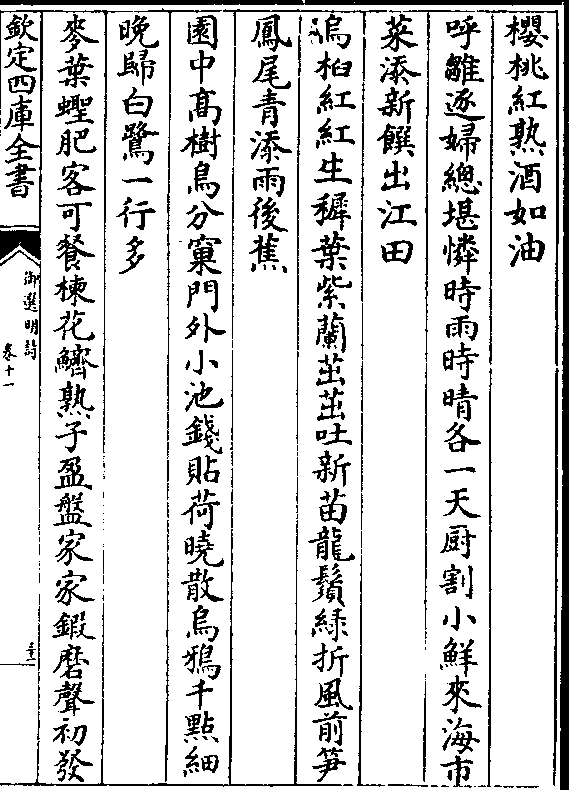 櫻桃紅熟酒如油
呼雛逐婦總堪憐時雨時晴各一天厨割小鮮來海市
菜添新饌出江田
烏桕紅紅生穉葉紫蘭茁茁吐新苗龍鬚綠折風前笋
鳳尾青添雨後蕉
園中高樹鳥分窠門外小池錢貼荷曉散烏鴉千點細
晚歸白鷺一行多
麥葉蟶肥客可餐楝花鱭熟子盈盤家家鍜磨聲初發
欽定四庫全書
御選明詩
卷十一